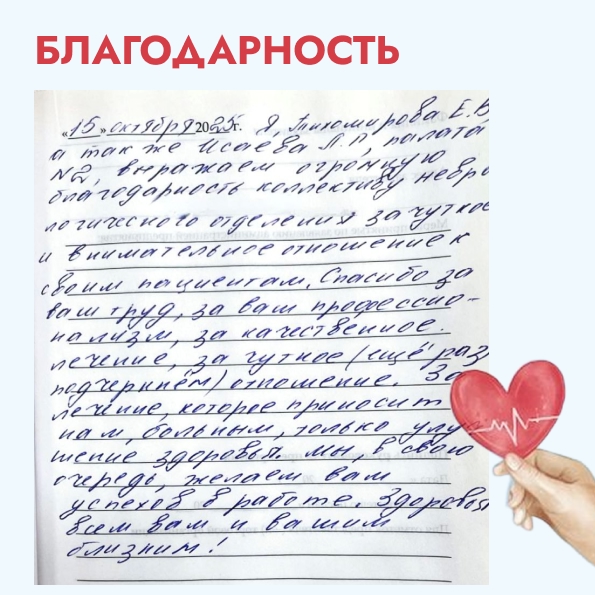 БЛАГОДАРНОСТЬ
«15» октября 2025г. Я, Тихомирова Е.В,
а также Исаева Л.П, палата
№2, выражаем огромную
благодарность коллективу невро
логического отделения за чуткое
и внимательное отношение к
своим пациентам. Спасибо за
ваш труд, за ваш профессио-
нализм, за качественное.
лечение, за чуткое (ещё раз
подчеркнём) отношение. За
лечение, которое приносит
нам, больным, только улу
шение здоровья. Мы, в свою
очередь, желаем вам
успехов в работе. Здоровья
всем вам и вашим
близким!